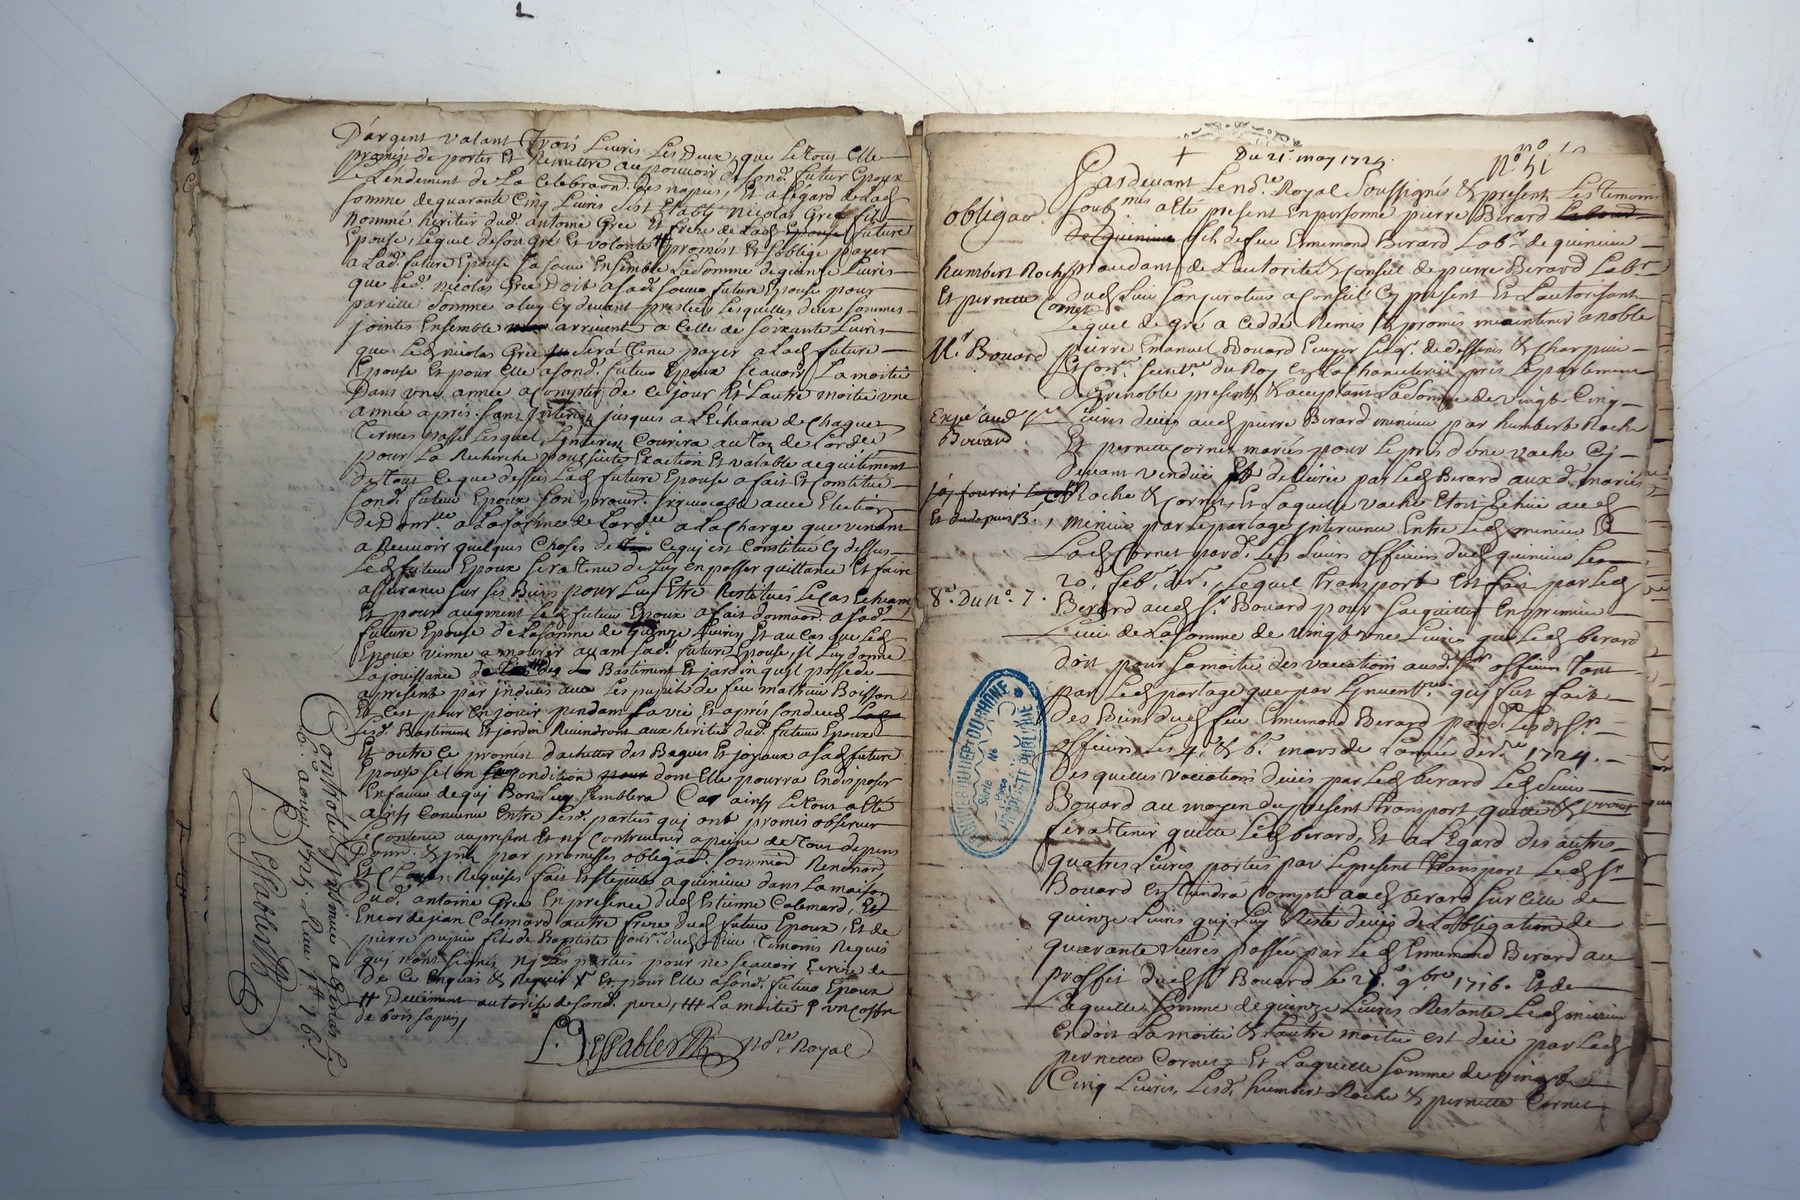 D'argent valant Trois Livres Les Deux, que Le Tout Elle
promis de porter Et Remettre au pouvoir de sond. futur Epoux
Le Lendement de La Celebraon. des nopces, Et a L'égard de Lad.
somme de quarante Cinq Livres s'est Etably Nicolas Gree fils
nommé heritier dud. antoine Gree Et frere de Lad. Epouse future
Epouse, Lequel de son gré Et volonté promis Et s'oblige payer
a Lad. future Epouse sa soeur Ensemble La somme de quinze Livres
que Led. Nicolas Gree Doit a sad. soeur future Epouse pour
pareille somme a luy Cy devant prestée, Lesquelles deux sommes
jointes Ensemble arrivent a Celle de soixante Livres
que Led. Nicolas Gree sera Tenu payer a Lad. future
Epouse Et pour Elle a sond. futur Epoux sçavoir La moitié
Dans une année a Compter de Ce jour Et L'autre moitié une
année après sans Interest jusques a L'Echeance de Chaque
Termes passé Lesquel Interest Courira au Tau de Lordce
pour La Recherche poursuite Exaction Et valable acquitement
de Tout Ce que dessus Lad. future Epouse a fait Et Constitué
sond. futur Epoux son procur. irrevocable avec Election
de Dom.lle a La forme de Lord.ce a La Charge que venant
a Recevoir quelques Choses de Ce qui est Constitué Cy dessus
Led. futur Epoux sera Tenu de Luy En passer quittance Et faire
assurance sur ses Biens pour Luy Etre Restitués Le Cas Echeant
Et pour augment Led. futur Epoux a fait donnaon. a sad.
future Epouse de La somme de quinze Livres, Et au Cas que Led.
Epoux vienne a mourir avant sad. future Epouse, Il Luy donne
La jouissance de Bastiment Et jardin qu'il possede
a present par indivis avec Les pupils de feu mathieu Boisson
Et C'est pour En jouir pendant sa vie Et après son deces
Lesd. Bastiment Et jardin Reviendront aux heritiers dud. futur Epoux
Et outre Ce promis d'achetter des Bagues Et joyaux a sad. future
Epouse selon sa Condition dont Elle pourra En disposer
En faveur de qui Bon Luy semblera Car ainsy Le Tout a Eté
ainsy Convenu Entre Lesd. parties qui ont promis observer
Le Contenu au present Et ny Contrevenir a peine de Tous depens
Dom. & Int. par promesses obligaon. soumision Renonciaon
Et Clauses Requises fait Et stipulé a quirieu dans La maison
dud. antoine Gree En presence dud. Estienne Calemard, Et
Encor de jean Calemard autre frere dud. futur Epoux, Et de
pierre pupin fils de Baptiste dud. Lieu Temoins Requis
qui n'ont signés ny Les parties pour ne sçavoir Ecrire de
De Ce Enquis & Requis Et pour Elle a sond. futur Epoux
# Deüement autorisé de sond. pere, ## La moitié d'un Coffre
de bois sapin,
Dessablettes No.re Royal
Controllé
Dessablettes
Du 21 may 1724.
N.o 51
Pardevant Le no.re Royal soussigné & present Les Temoins
soub.nés a Eté present En personne pierre Berard
de quirieu fils de feu Ennemond Berard Lab.r de quirieu
procedant de L'autorité & Conseil de pierre Berard Lab.r
dud. Lieu son curateur a Conseil Cy present Et L'autorisant
Lequel de gré a Ceddé Remis & promis maintenir a noble
pierre Emanuel Bouard Ecuyer seig.r de &  Charpieu
Et Con.r secret.re du Roy En La Chancelerie près Le parlement
de Grenoble present & acceptant La somme de vingt Cinq
Livres deües aud. pierre Berard mineur par humbert Roche
Et pernette Cornet mariés pour Le prix d'une vache Cy
devant vendüe Et delivrée par Led. Berard aux d. mariés
Roche & Cornet, Et Laquelle vache Etoit Echüe aud.
mineur par Le partage intervenu Entre Led. mineur Et
Lad. Cornet pard. Les sieurs officiers dud. quirieu Le
20. feb. der. Lequel Transport Est fait par Led.
Berard aud. S.r Bouard pour s'acquitter En premier
Lieu de La somme de vingt une Livres que Led. berard
doit pour sa moitié des vacations ausd. S.rs officiers Tant
par Led. partage que par L'Invent.re qui fut fait
des Biens dud. feu Ennemond Berard pard. Lesd. S.rs
officiers Les 4.e & 6.e mars de L'année der.re 1724.
Desquelles vacations deües par Led. berard Led. sieur
Bouard au moyen du present Transport quitte & promet
fera tenir quitte Led. berard, Et a L'Egard des autres
quatres Livres portées par Le present Transport Led. S.r
Bouard En Tiendra Compte aud. berard sur Celle de
quinze Livres qui Luy Reste deües de L'obligation de
quarante Livres passée par Led. Ennemond Berard au
proffit dud. S.r Bouard Le 9bre 1716. Et de
Laquelle somme de quinze Livres Restante Led. mineur
En doit La moitié & L'autre moitié est deüe par Lad.
pernette Cornet Et Laquelle somme de vingt
Cinq Livres, Lesd. humbert Roche & pernette Cornet
obligaon
humbert Roche
Et pernette Cornet
N.e Bouard
Expé aud. S.r
Bouard
8.e Du n.o 7.
ARCHIVES DU DEPT DU RHONE
Série
PROPRIETE PUBLIQUE